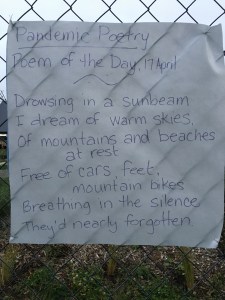 Pandemic Poetry
Poem of the Day, 17 April
Drowsing in a sunbeam
I dream of warm skies,
Of mountains and beaches
at rest
Free of cars, feet,
mountain bikes
Breathing in the silence
They'd nearly forgotten